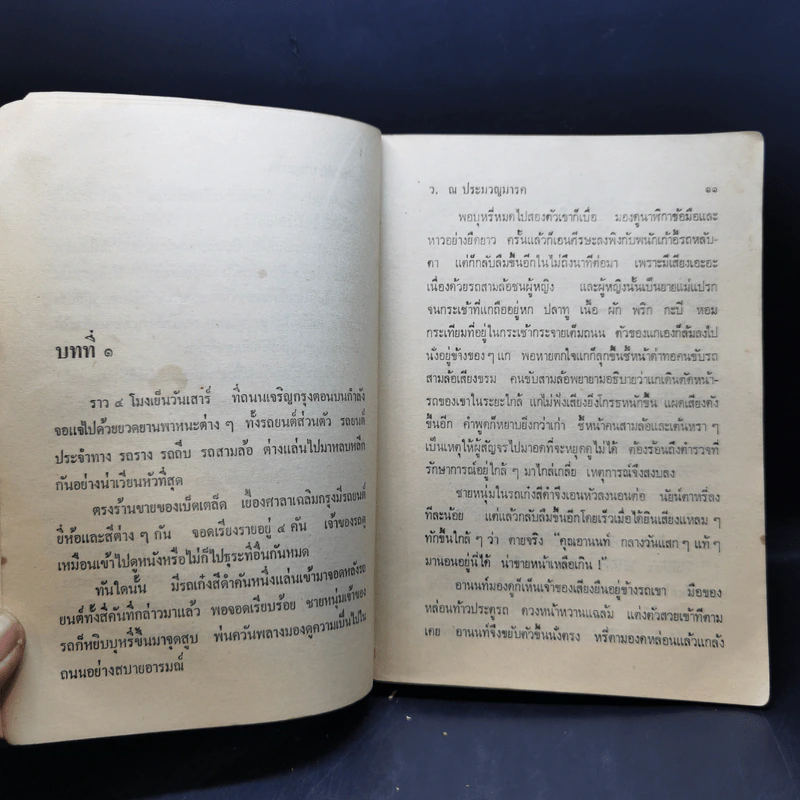 บทที่ ๑
ราว ๔ โมงเย็นวันเสาร์ ที่ถนนเจริญกรุงตอนบนกำลัง
จอแจไปด้วยยวดยานพาหนะต่าง ๆ ทั้งรถยนต์ส่วนตัว รถยนต์
ประจำทาง รถราง รถถีบ รถสามล้อ ต่างแล่นไปมาหลบหลีก
กันอย่างน่าเวียนหัวที่สุด
ตรงร้านขายของเบ็ดเตล็ด เยื้องศาลาเฉลิมกรุงมีรถยนต์
ยี่ห้อและสีต่าง ๆ กัน จอดเรียงรายอยู่ ๔ คัน เจ้าของรถดู
เหมือนเข้าไปดูหนังหรือไม่ก็ไปธุระที่อื่นกันหมด
ทันใดนั้น มีรถเก๋งสีดำคันหนึ่งแล่นเข้ามาจอดหลังรถ
ยนต์ทั้งสี่คันที่กล่าวมาแล้ว พอจอดเรียบร้อย ชายหนุ่มเจ้าของ
รถก็หยิบบุหรี่ขึ้นมาจุดสูบ พ่นควันพลางมองดูความเป็นไปใน
ถนนอย่างสบายอารมณ์
ว. ณ ประมวญมารค ๑๑
พอบุหรี่หมดไปสองตัวเขาก็เบื่อ มองดูนาฬิกาข้อมือและ
หาวอย่างยืดยาว ครั้นแล้วก็เอนศีรษะลงพิงกับพนักเก้าอี้รถหลับ-
ตา แต่ก็กลับลืมขึ้นอีกในไม่ถึงนาทีต่อมา เพราะมีเสียงเอะอะ
เนื่องด้วยรถสามล้อชนผู้หญิง และผู้หญิงนั้นเป็นยายแม่แปรก
จนกระเช้าที่แกถืออยู่หก ปลาทู เนื้อ ผัก พริก กะปิ หอม
กระเทียมที่อยู่ในกระเช้ากระจายเต็มถนน ตัวของแกเองก็ล้มลงไป
นั่งอยู่ข้างของ ๆ แก พอหายตกใจแกก็ลุกขึ้นชี้หน้าด่าทอคนขับรถ
สามล้อเสียงขรม คนขับสามล้อพยายามอธิบายว่าแกเดินตัดหน้า-
รถของเขาในระยะใกล้ แกไม่ฟังเสียงยิ่งโกรธหนักขึ้น แผดเสียงดัง
ขึ้นอีก คำพูดก็หยาบยิ่งกว่าเก่า ชี้หน้าคนสามล้อและเต้นหรา ๆ
เป็นเหตุให้ผู้สัญจรไปมาอดที่จะหยุดดูไม่ได้ ต้องร้อนถึงตำรวจที่
รักษาการณ์อยู่ใกล้ ๆ มาไกล่เกลี่ย เหตุการณ์จึงสงบลง
ชายหนุ่มในรถเก๋งสีดำจึงเอนหัวลงนอนต่อ นัยน์ตาหรี่ลง
ทีละน้อย แต่แล้วกลับลืมขึ้นอีกโดยเร็วเมื่อได้ยินเสียงแหลม ๆ
ทักขึ้นใกล้ ๆ ว่า ตายจริง "คุณอานนท์ กลางวันแสก ๆ แท้ ๆ
มานอนอยู่นี่ได้ น่าขายหน้าเหลือเกิน !"
อานนท์มองดูก็เห็นเจ้าของเสียงยืนอยู่ข้างรถเขา มือของ
หล่อนท้าวประตูรถ ดวงหน้าหวานแฉล้ม แต่งตัวสวยเข้าทีตาม
เคย อานนท์จึงขยับตัวขึ้นนั่งตรง หรี่ตามองคหล่อนแล้วแกล้ง